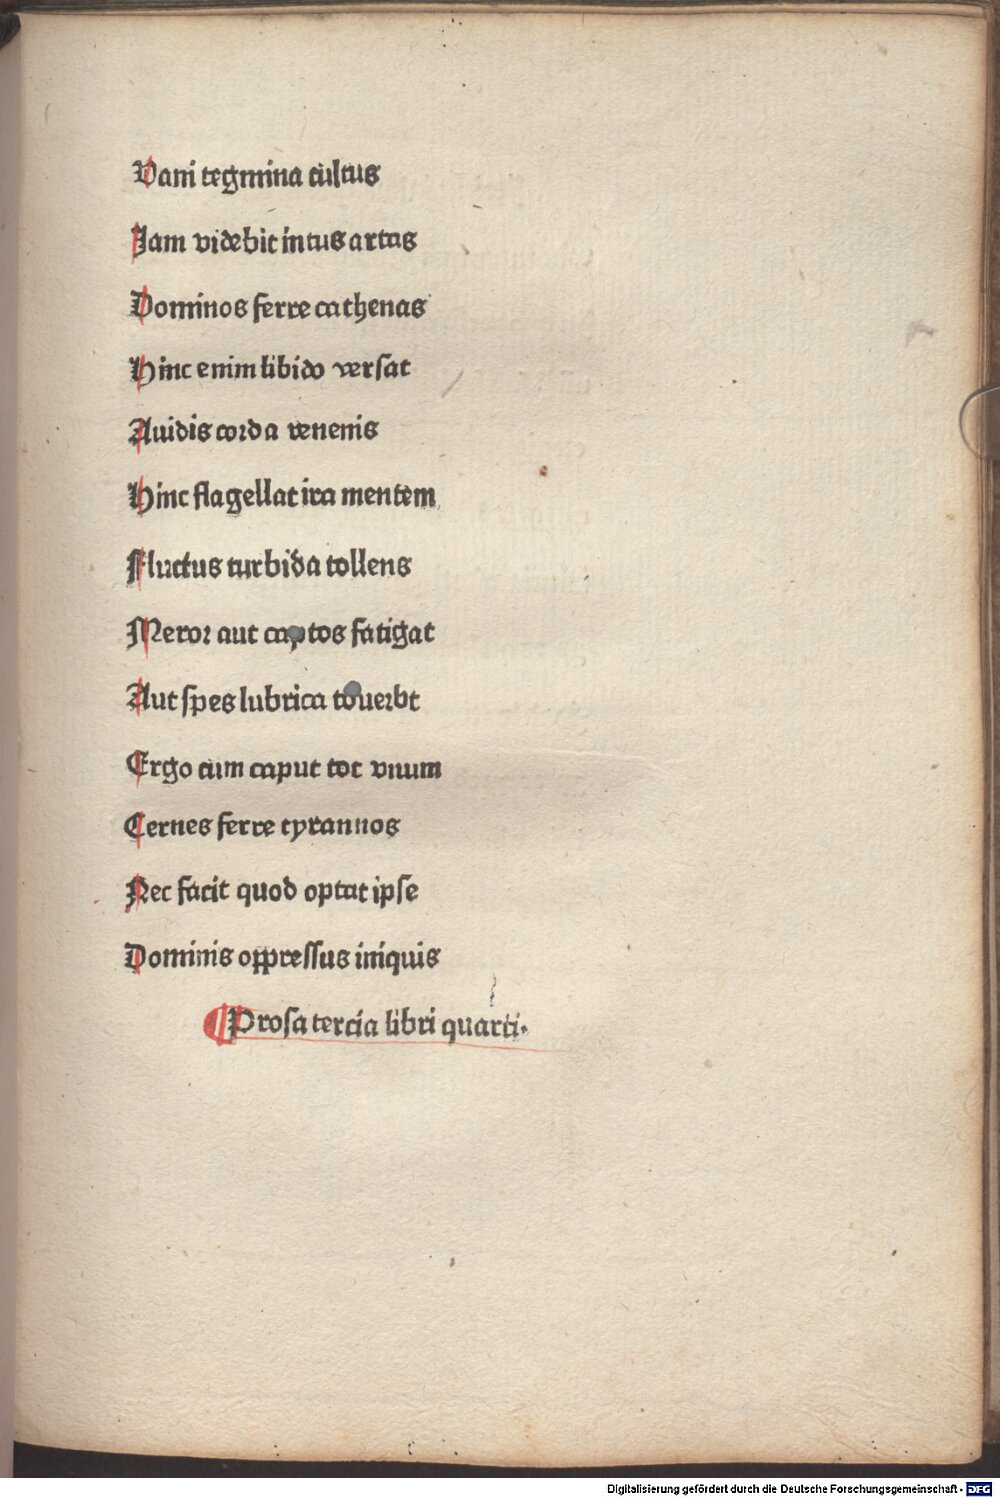 Vani tegmina cultus
Jam videbit intus artas
Dominos ferre cathenas
Hinc enim libido versat
Auidis corda venenis
Hinc flagellat ira mentem
Fluctus turbida tollens
Meror aut captos fatigat
Aut spes lubrica
Ergo cum caput tot vnum
Cernes ferre tyrannos
Nec facit quod optat ipse
Dominis oppressus iniquis
Prosa tercia libri quarti.
Digitalisierung gefördert durch die Deutsche Forschungsgemeinschaft - DFG